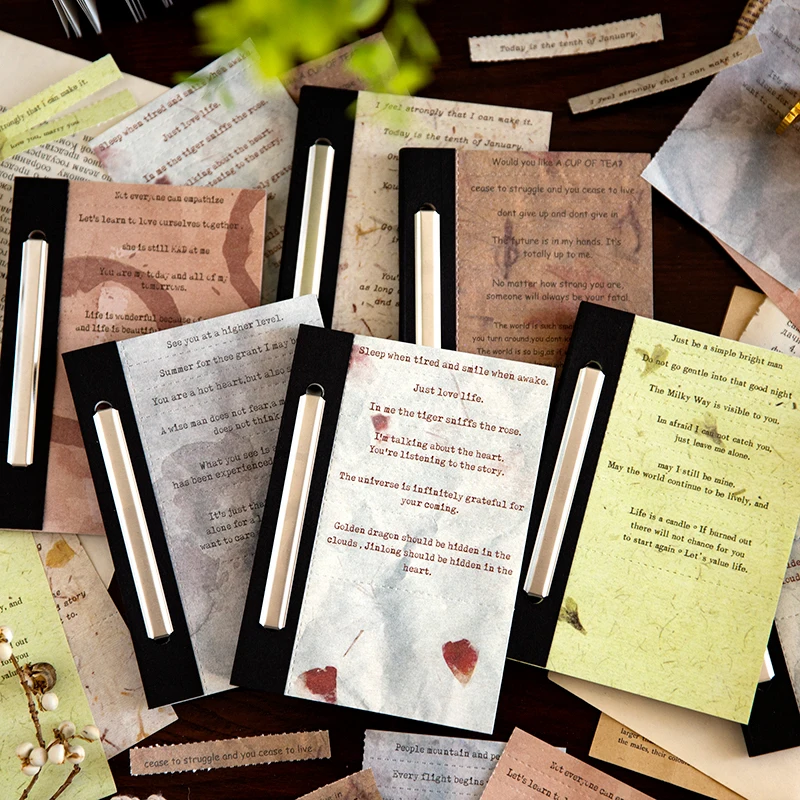 Today is the tenth of January.
I feel strongly that I can make it.
strongly that I can make it.
love you, marry you
Sleep when tired and smile
Just love life.
In me the tiger sniffs the rose.
talking about the heart.
listening to the story.
A CUP OF
I feel strongly that I can make it.
Today is the tenth of January.
You'
as long
and s
Would you like A CUP OF TEA?
cease to struggle and you cease to live
dont give up and dont give in
The future is in my hands. It's
totally up to me.
No matter how strong you are,
someone will always be your fatal
The world is such
you turn around you dont
The world is so big as
Not everyone can empathize
Let's learn to love ourselves together
she is still MAD at me
You are my today and all of my
tomorrows.
Life is wonderful because
and life is beautiful
See you at a higher level.
Summer for thee grant I may b
You are a hot heart,but also
A wise man does not fear,a m
doep not think
What you see is
has been experienced
It's just tha
alone for a l
want to caro
Sleep when tired and smile when awake.
Just love life.
In me the tiger sniffs the rose.
I'm talking about the heart.
You're listening to the story.
The universe is infinitely grateful for
your coming.
Golden dragon should be hidden in the
clouds , Jinlong should be hidden in the
heart.
Just be a simple bright man
Do not go gentle into that good night
The Milky Way is visible to you.
Im afraid I cannot catch you,
just leave me alone.
may I still be mine.
May the world continue to be lively, and
Life is a candle。If burned out
there will not chance for you
to start again。Let's value life.
ly, and
out
story
to.
cease to struggle and you cease to live
People mountain and pe
Every flight begins
Not everyone can
Let's learn t
larger
the males, their colou